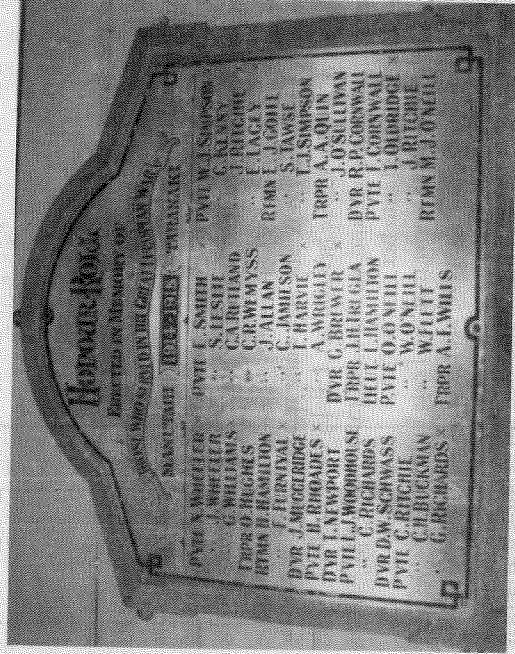 HONOUR ROLL
ERECTED IN MEMORY OF
THOSE WHO SERVED IN THE GREAT EUROPEAN WAR
MANUTAHI TURANGARERE
PVTE N. WHEELER
" J. WHEELER
" G. WILLIAMS ×
TRPR O. HUGHES
RFMN B. HAMILTON
" F. FURNIVAL
DVR J. MUGGERIDGE
PVTE H. RHOADES ×
DVR T. NEWPORT
PVTE L.J. WOODHOUSE
" C. RICHARDS
DVR D.W. SCHWASS
PVTE C. RITCHIE
" C.H. BUCKMAN
" G. RICHARDS ×
PVTE E. SMITH
" S. LESLIE
" C.A. REILAND
" C.R. WEMYSS
" J. ALLAN
" C. JAMIESON
" T. HARVIE
" A. WRIGLEY
DVR G. BROWER ×
TRPR J.H. TREGEA
LIEUT L. HAMILTON
PVTE O. O'NEILL
" W. O'NEILL
" W. FLETT
TRPR A.L. WILLS
PVTE W.J. SIMPSON
" G. KENNY
" J. RITCHIE
" E. LACEY
RFMN E.J. GOILE
" S. TAWSE
" T.J. SIMPSON
TRPR A.A. QUIN
" J. O'SULLIVAN
DVR R.P. CORNWALL
PVTE F. CORNWALL
" T. OLDRIDGE
" J. RITCHIE
RFMN M.J. O'NEILL